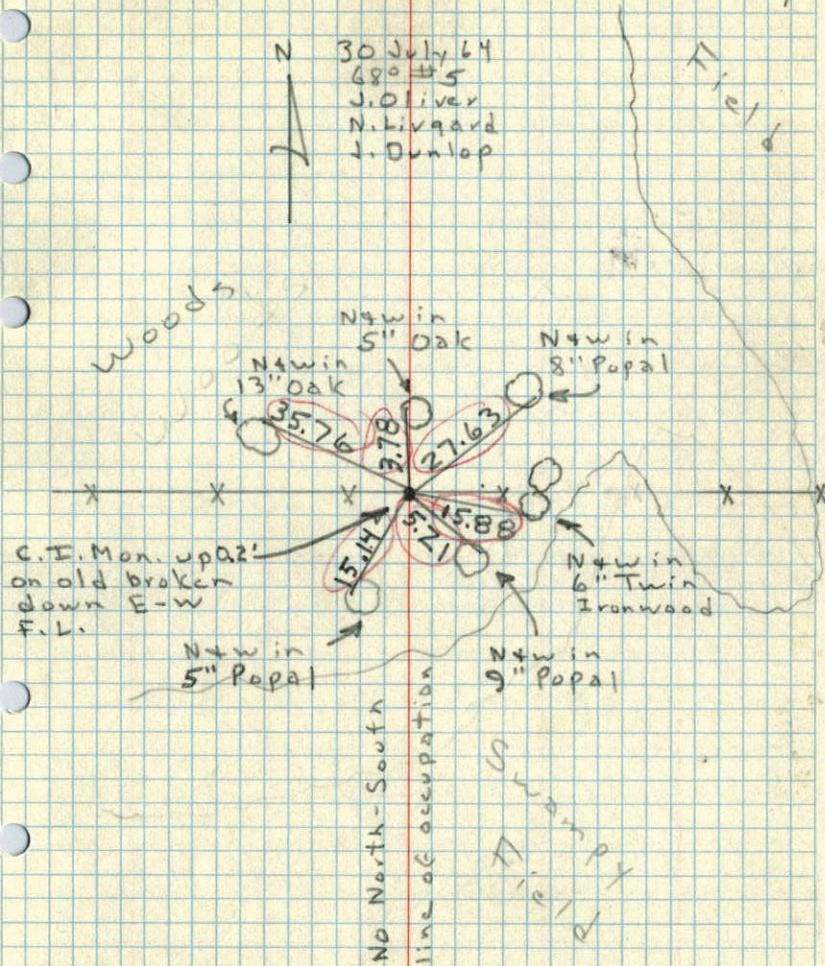 N
30 July 64
68° #5
J. Oliver
N. Livgard
J. Dunlop
Field
Woods
N&W in
5" Oak
N&W in
8" Popal
N&W in
13" Oak
35.76
3.78
27.63
15.88
5.21
15.14
C.I. Mon. up 0.2'
on old broken
down E-W
F.L.
N&W in
6" Twin
Ironwood
N&W in
5" Popal
N&W in
9" Popal
No North-South
line of occupation
Swampy
Field